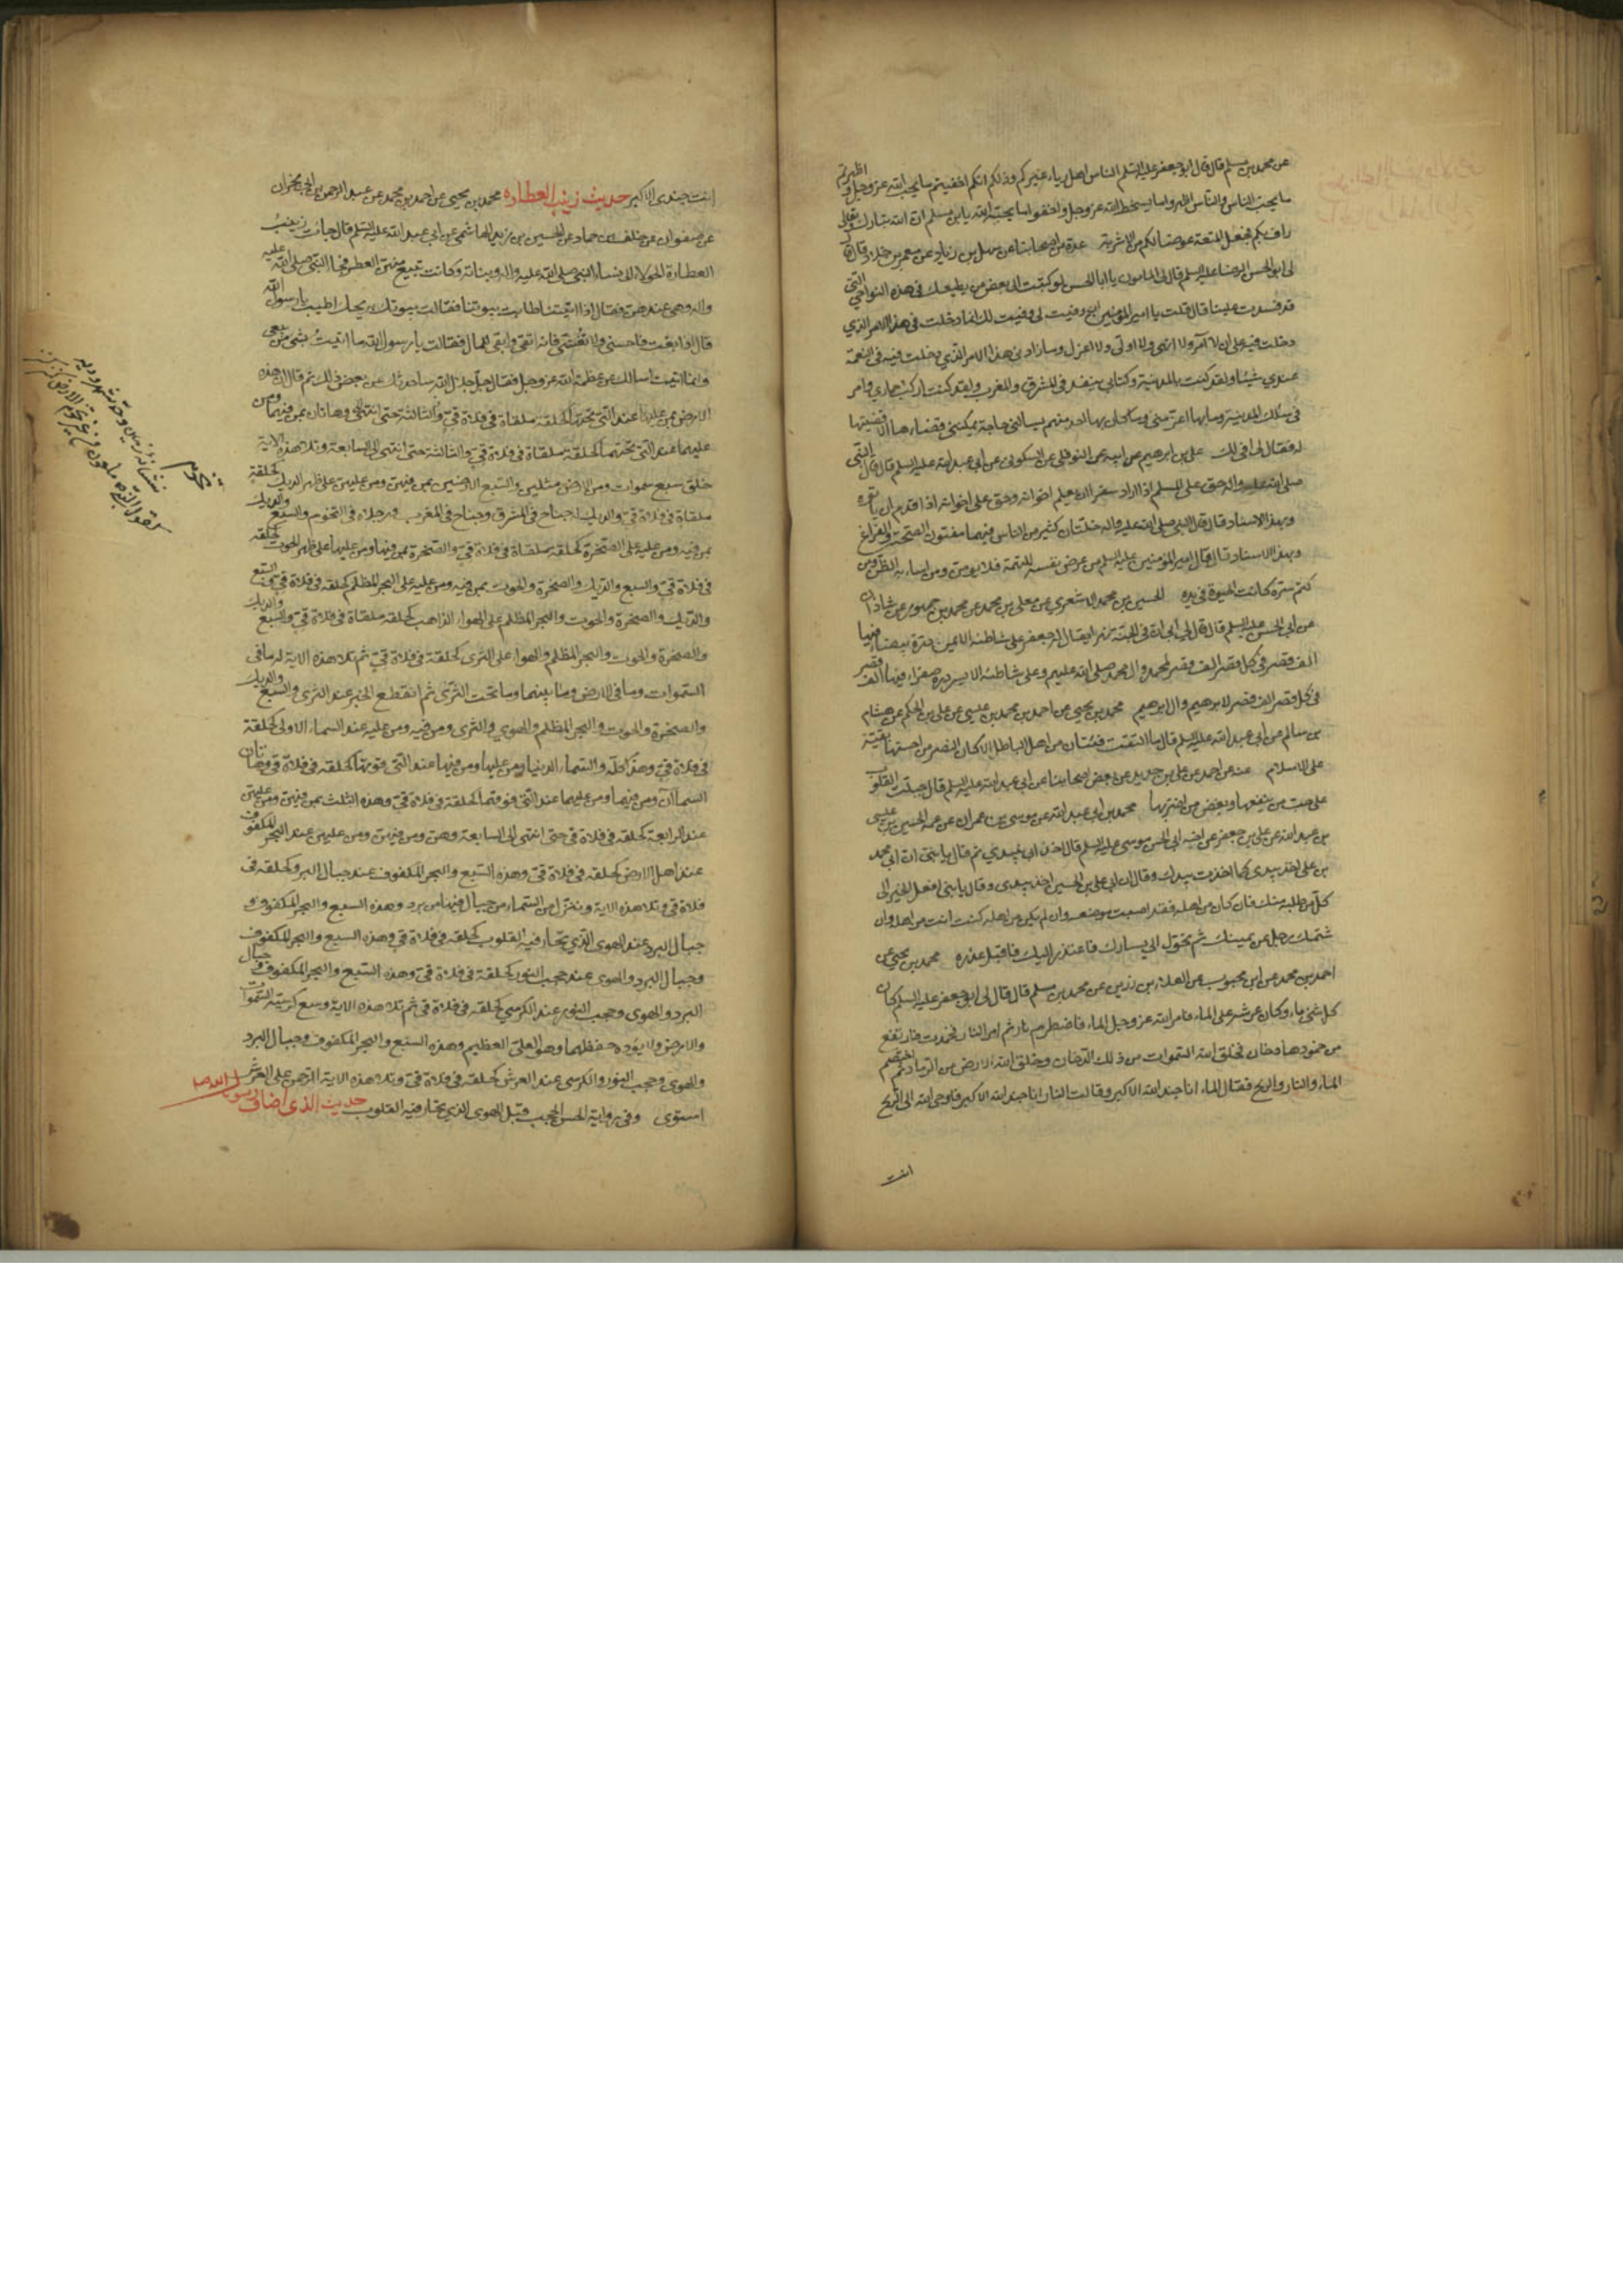 عن محمد بن مسلم قال قال ابو جعفر عليه السلم الناس اهل رياء غيركم وذلكم انكم اخفيتم ما يحب الله عز وجل واظهرتم
ما يحب الناس والناس اظهروا ما يسخط الله عز وجل واخفوا ما يحبه الله يابن مسلم ان الله تبارك وتعالى
راف بكم فجعل المتعة عوضا لكم من الاشربة عدة من اصحابنا عن سهل بن زياد عن معمر بن خلاد قال قال
لى ابو الحسن الرضا عليه السلم قال لى المامون يا ابا الحسن لو كتبت الى بعض من يطيعك فى هذه النواحى التى
قد فسدت علينا قال قلت يا امير المؤمنين ان وفيت لى وفيت لك انما دخلت فى هذا الامر الذي
دخلت فيه على ان لا آمر ولا انهى ولا اولى ولا اعزل وما زادنى هذا الامر الذي دخلت فيه فى النعمة
عندي شيئا ولقد كنت بالمدينة وكتابى ينفذ فى المشرق والمغرب ولقد كنت اركب حماري وامر
فى سكك المدينة وما بها اعز منى وما كان بها احد منهم يسالنى حاجة يمكننى قضاءها الا قضيتها
له فقال لى افى لك على بن ابرهيم عن ابيه عن النوفلى عن السكونى عن ابى عبد الله عليه السلم قال قال النبى
صلى الله عليه واله حق على المسلم اذا اراد سفرا ان يعلم اخوانه وحق على اخوانه اذا قدم ان ياتوه
وبهذا الاسناد قال قال النبى صلى الله عليه واله خلتان كثير من الناس فيهما مفتون الصحة والفراغ
وبهذا الاسناد قال قال امير المؤمنين عليه السلم من عرض نفسه للتهمة فلا يلومن من اساء به الظن ومن
كتم سره كانت الخيرة فى يده الحسين بن محمد الاشعري عن معلى بن محمد عن محمد بن جمهور عن شاذان
عن ابى الحسن عليه السلم قال قال لى ابى ان فى الجنة نهرا يقال له جعفر على شاطئه الايمن درة بيضاء فيها
الف قصر فى كل قصر الف قصر لمحمد وال محمد صلى الله عليهم وعلى شاطئه الايسر درة صفراء فيها الف قصر
فى كل قصر الف قصر لابرهيم وال ابرهيم محمد بن يحيى عن احمد بن محمد بن عيسى عن على بن الحكم عن هشام
بن سالم عن ابى عبد الله عليه السلم قال ما التقت فئتان من اهل الباطل الا كان النصر مع احسنهما بقية
على الاسلام عنه عن احمد عن على بن حديد عن بعض اصحابنا عن ابى عبد الله عليه السلم قال جبلت القلوب
على حب من ينفعها وبغض من اضر بها محمد بن ابى عبد الله عن موسى بن عمران عن عمه الحسين بن عيسى
بن عبد الله عن على بن جعفر عن اخيه ابى الحسن موسى عليه السلم قال اخذ ابى بيدي ثم قال يا بنى ان ابى محمد
بن على اخذ بيدى كما اخذت بيدك وقال ان ابى على بن الحسين اخذ بيدى وقال يا بنى افعل الخير الى
كل من طلبه منك فان كان من اهله فقد اصبت موضعه وان لم يكن من اهله كنت انت من اهله وان
شتمك رجل عن يمينك ثم تحول الى يسارك فاعتذر اليك فاقبل عذره محمد بن يحيى عن
احمد بن محمد عن ابن محبوب عن العلاء بن رزين عن محمد بن مسلم قال قال لى ابو جعفر عليه السلم كان
كل شىء ماء وكان عرشه على الماء فامر الله عز وجل الماء فاضطرم نارا ثم امر النار فخمدت فارتفع
من خمودها دخان فخلق الله السموات من ذلك الدخان وخلق الله الارض من الرماد ثم اختصم
الماء والنار والريح فقال الماء انا جند الله الاكبر وقالت النار انا جند الله الاكبر فاوحى الله الى الريح
انت
انت جندى الاكبر حديث زينب العطارة محمد بن يحيى عن احمد بن محمد عن عبد الرحمن بن ابى نجران
عن صفوان عن خلف بن حماد عن الحسين بن زيد الهاشمى عن ابى عبد الله عليه السلم قال جاءت زينب
العطارة الحولاء الى نساء النبى صلى الله عليه واله وبناته وكانت تبيع منهن العطر فجاء النبى صلى الله عليه
واله وهى عندهن فقال اذا اتيتنا طابت بيوتنا فقالت بيوتك بريحك اطيب يا رسول الله
قال اذا بعت فاحسنى ولا تغشى فانه اتقى وابقى للمال فقالت يا رسول الله ما اتيت بشىء من بيعى
وانما اتيت اسالك عن عظمة الله عز وجل فقال جل جلال الله ساحدثك عن بعض ذلك ثم قال ان هذه
الارض بمن عليها عند التى تحتها كحلقة ملقاة فى فلاة قى وهاتان بمن فيهما ومن
عليهما عند التى تحتهما كحلقة ملقاة فى فلاة قى والثالثة حتى انتهى الى السابعة وتلا هذه الاية
خلق سبع سموات ومن الارض مثلهن والسبع الارضين بمن فيهن ومن عليهن على ظهر الديك كحلقة
ملقاة فى فلاة قى والديك له جناح فى المشرق وجناح فى المغرب ورجلاه فى التخوم والسبع والديك
بمن فيه ومن عليه على الصخرة كحلقة ملقاة فى فلاة قى والصخرة بمن فيها ومن عليها على ظهر الحوت كحلقة
فى فلاة قى والسبع والديك والصخرة والحوت بمن فيه ومن عليه على البحر المظلم كحلقة فى فلاة قى والسبع
والديك والصخرة والحوت والبحر المظلم على الهواء الذاهب كحلقة ملقاة فى فلاة قى والسبع والديك
والصخرة والحوت والبحر المظلم والهواء على الثرى كحلقة فى فلاة قى ثم تلا هذه الاية له ما فى
السموات وما فى الارض وما بينهما وما تحت الثرى ثم انقطع الخبر عند الثرى والسبع والديك
والصخرة والحوت والبحر المظلم والهوى والثرى ومن فيه ومن عليه عند السماء الاولى كحلقة
فى فلاة قى وهذا كله والسماء الدنيا ومن عليها ومن فيها عند التى فوقها كحلقة فى فلاة قى وهاتان
السماآن ومن فيهما ومن عليهما عند التى فوقهما كحلقة فى فلاة قى وهذه الثلث بمن فيهن ومن عليهن
عند الرابعة كحلقة فى فلاة قى حتى انتهى الى السابعة وهن ومن فيهن ومن عليهن عند البحر المكفوف
عند اهل الارض كحلقة فى فلاة قى وهذه السبع والبحر المكفوف عند جبال البرد كحلقة فى
فلاة قى وتلا هذه الاية وننزل من السماء من جبال فيها من برد وهذه السبع والبحر المكفوف و
جبال البرد عند الهوى الذي تحار فيه القلوب كحلقة فى فلاة قى وهذه السبع والبحر المكفوف
وجبال البرد والهوى عند حجب النور كحلقة فى فلاة قى وهذه السبع والبحر المكفوف وجبال
البرد والهوى وحجب النور عند الكرسي كحلقة فى فلاة قى ثم تلا هذه الاية وسع كرسيه السموات
والارض ولا يؤده حفظهما وهو العلى العظيم وهذه السبع والبحر المكفوف وجبال البرد
والهوى وحجب النور والكرسى عند العرش كحلقة فى فلاة قى وتلا هذه الاية الرحمن على العرش
استوى وفى رواية الحسن الحجب قبل الهوى الذي تحار فيه القلوب حديث الذى اضاف رسول الله ص
تخوم